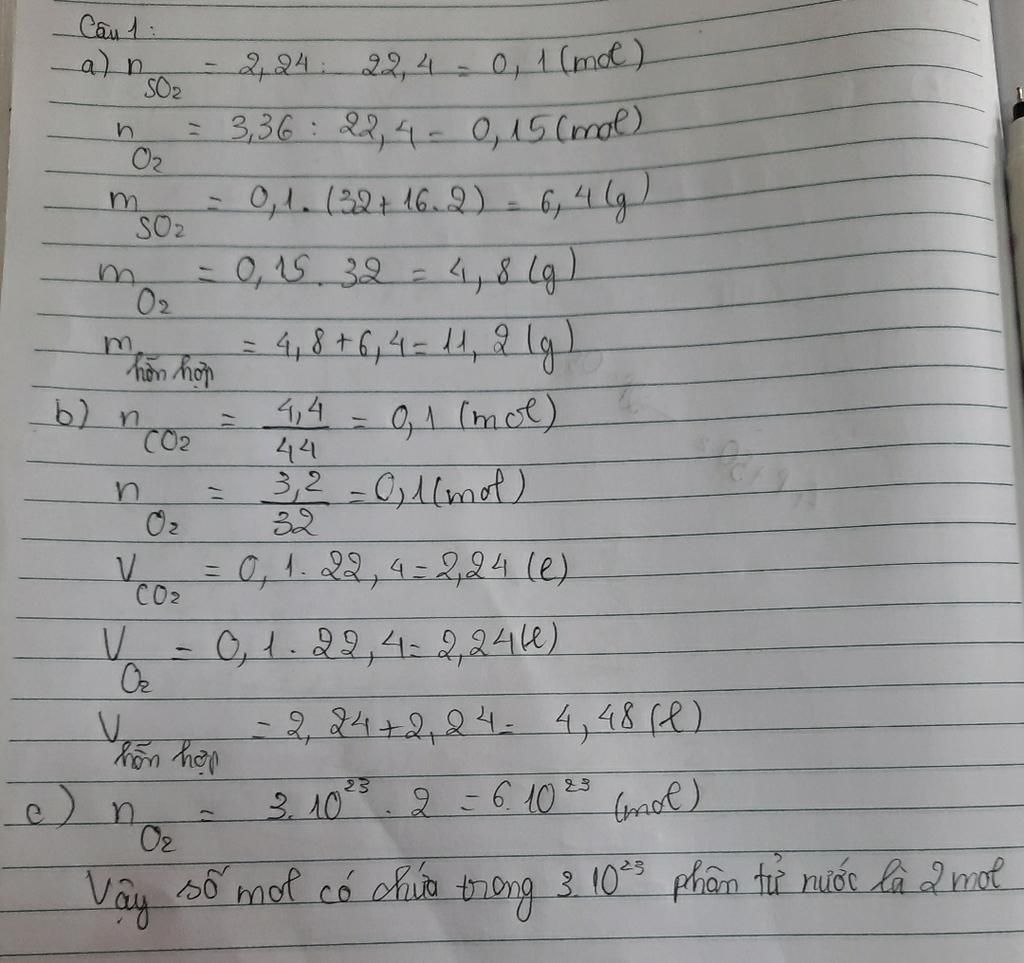 Câu 1:
a) n SO2 = 2,24 : 22,4 = 0,1 (mol)
n O2 = 3,36 : 22,4 = 0,15 (mol)
m SO2 = 0,1 . (32 + 16 . 2) = 6,4 (g)
m O2 = 0,15 . 32 = 4,8 (g)
m hỗn hợp = 4,8 + 6,4 = 11,2 (g)
b) n CO2 = 4,4/44 = 0,1 (mol)
n O2 = 3,2/32 = 0,1 (mol)
V CO2 = 0,1 . 22,4 = 2,24 (l)
V O2 = 0,1 . 22,4 = 2,24 (l)
V hỗn hợp = 2,24 + 2,24 = 4,48 (l)
c) n O2 = 3.10^23 . 2 = 6.10^23 (mol)
Vậy số mol có chứa trong 3.10^23 phân tử nước là 2 mol